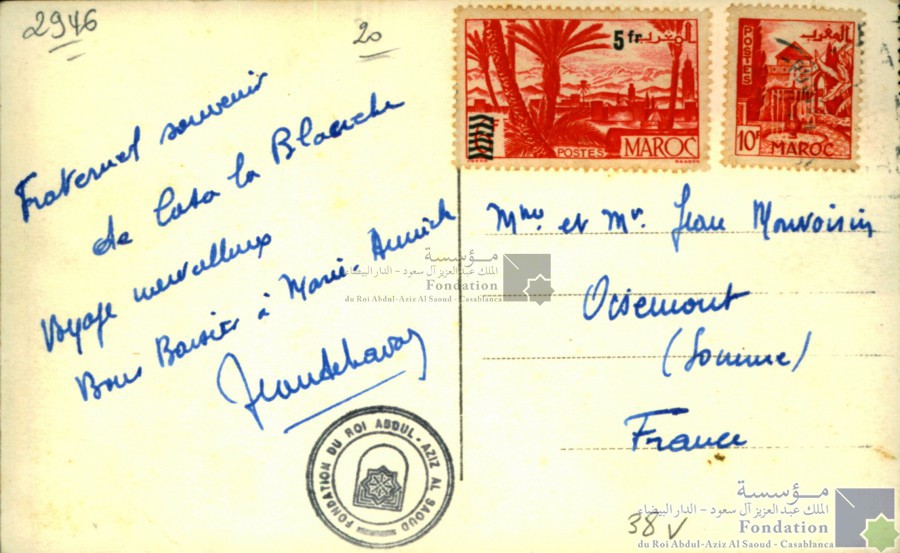 2946
20
Fraternel souvenir
de Casa la Blanche
Voyage merveilleux
Bons Baisers à Marie-Annick
5fr المغرب
POSTES MAROC
المغرب
POSTES
10F MAROC
Mme et Mr. Jean Monvoisin
Oisemont
(Somme)
France
مؤسسة
الملك عبدالعزيز آل سعود - الدار البيضاء
Fondation
du Roi Abdul-Aziz Al Saoud - Casablanca
FONDATION DU ROI ABDUL-AZIZ AL SAOUD
38 V
مؤسسة
الملك عبدالعزيز آل سعود - الدار البيضاء
Fondation
du Roi Abdul-Aziz Al Saoud - Casablanca